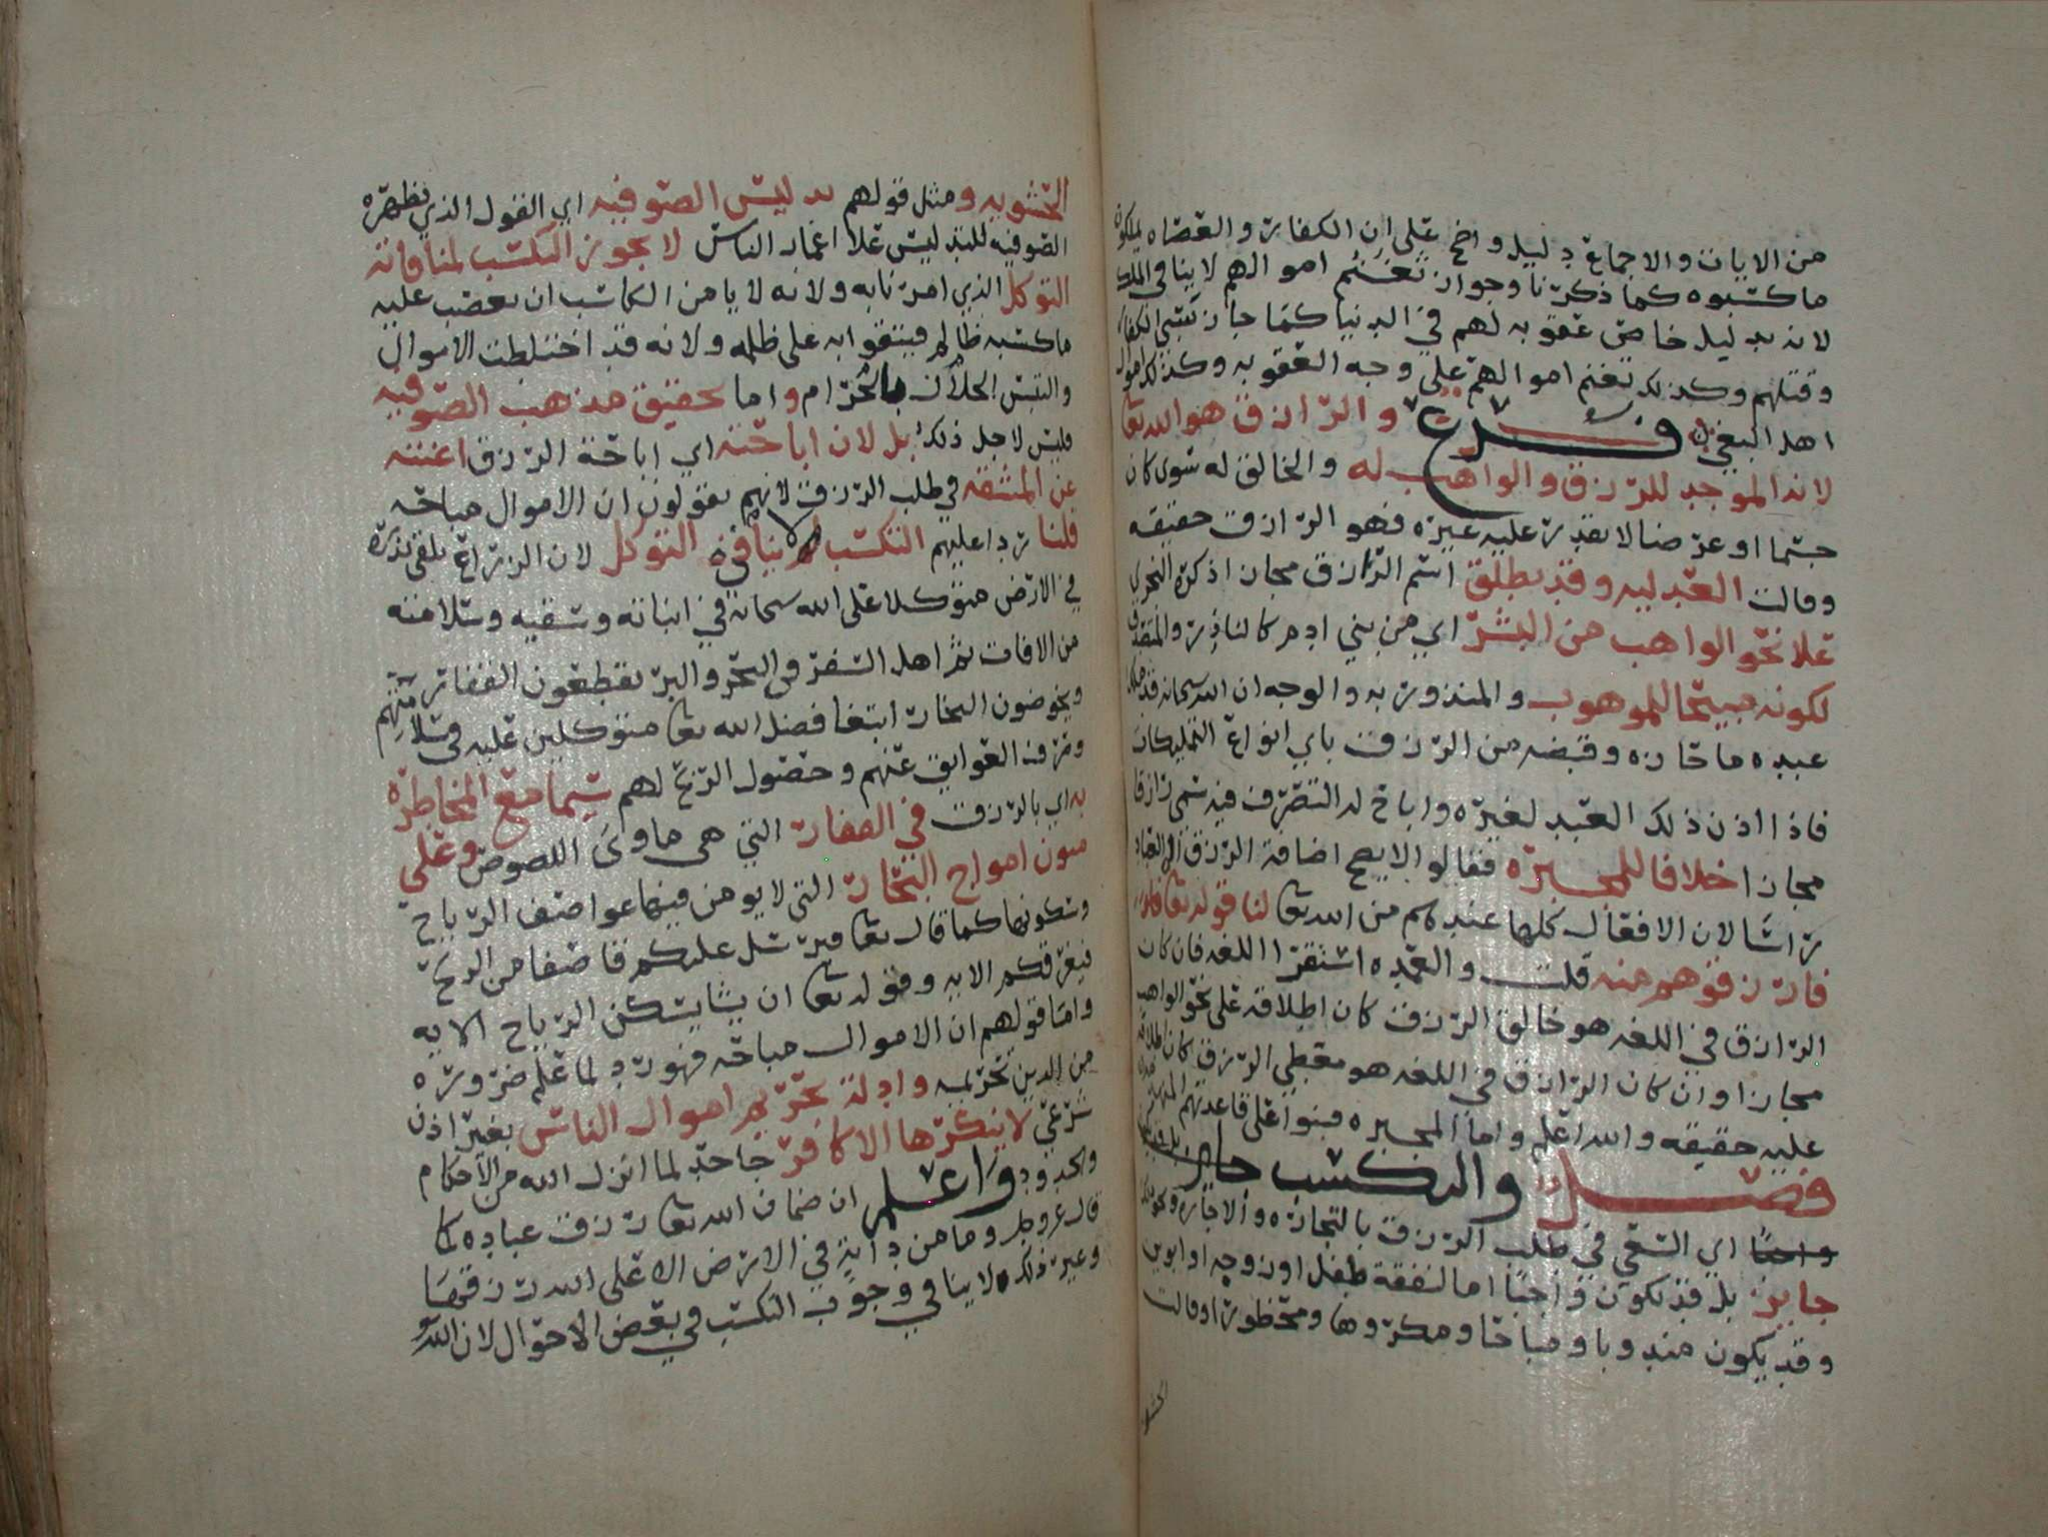 من الايات والاجماع دليل واضح على ان الكفار والعصاه يملكون
ما كسبوه كما ذكرنا وجواز تغنم اموالهم لا ينافي الملك
لانه بدليل خاص عقوبه لهم في الدنيا كما جاز سبي الكفار
وقتلهم وكذلك تغنم اموالهم على وجه العقوبه وكذلك اموال
اهل البغي فرع والرازق هو الله تعا
لانه الموجد للرزق والواهب له والخالق له سوى كان
جسما او عرضا لا يقدر عليه غيره فهو الرازق حقيقه
وقالت العدليه وقد يطلق اسم الرازق مجازا ذكره النجري
علا نحو الواهب من البشر اي من بني ادم كالناذر والمتصدق
لكونه مبيحا للموهوب والمنذور به والوجه ان الله سبحانه قد ملك
عبده ما حازه وقبضه من الرزق باي انواع التمليكات
فاذا اذن ذلك العبد لغيره واباح له التصرف فيه سمي رازقا
مجازا خلافا للمجبره فقالوا لا يصح اضافة الرزق الى العباد
راسا لان الافعال كلها عندهم من الله تعا لنا قوله تعا
فارزقوهم منه قلت والعمده استقرا اللغه فان كان
الرازق في اللغه هو خالق الرزق كان اطلاقه على نحو الواهب
مجازا وان كان الرازق في اللغه هو معطي الرزق كان اطلاقه
عليه حقيقه والله اعلم واما المجبره فبنوا على قاعدتهم المنهده
فصل والتكسب جايز
اي السعي في طلب الرزق بالتجاره والاجاره ونحو ذلك
جايز بل قد يكون واجبا اما لنفقة طفل او زوجه او ابوين
وقد يكون مندوبا ومباحا ومكروها ومحظورا وقالت
الحشويه
الحشويه ومثل قولهم تدليس الصوفيه اي القول الذي تظهره
الصوفيه للتدليس علا اغمار الناس لا يجوز التكسب لمنافاته
التوكل الذي امرنا به ولانه لا يامن الكاسب ان يغصب عليه
ما كسبه ظالم فيتقوا به على ظلمه ولانه قد اختلطت الاموال
والتبس الحلال بالحرام واما تحقيق مذهب الصوفيه
فليس لاجل ذلك بل لان اباحته اي اباحة الرزق اغنته
عن المشقه في طلب الرزق لانهم يقولون ان الاموال مباحه
قلنا ردا عليهم التكسب لا ينافي التوكل لان الزراع يلقي بذره
في الارض متوكلا على الله سبحانه في انباته وسقيه وسلامته
من الافات ثم اهل السفر في البحر والبر يقطعون القفار
ويخوضون البحار ابتغا فضل الله تعا متوكلين عليه في سلامتهم
وصرف العوايق عنهم وحصول الربح لهم سيما مع المخاطره
به اي بالرزق في القفار التي هي ماوى اللصوص وعلى
متون امواج البحار التي لا يومن فيها عواصف الرياح
وسكونها كما قال تعا فيرسل عليكم قاصفا من الريح
فيغرقكم الايه وقوله تعا ان يشا يسكن الرياح الايه
واما قولهم ان الاموال مباحه فهو رد لما علم ضروره
من الدين تحريمه وادلة تحريم اموال الناس بغير اذن
شرعي لا ينكرها الا كافر جاحد لما انزل الله من الاحكام
والحدود واعلم ان ضمان الله تعا رزق عباده كما
قال عز وجل وما من دابة في الارض الا على الله رزقها
وغير ذلك لا ينافي وجوب التكسب في بعض الاحوال لان الله